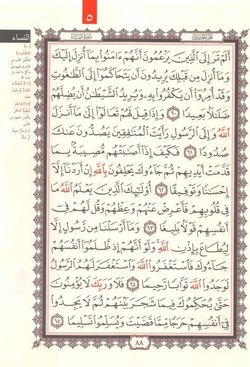 ٥
النساء
أَلَمْ تَرَ إِلَى ٱلَّذِينَ يَزْعُمُونَ أَنَّهُمْ ءَامَنُوا۟ بِمَآ أُنزِلَ إِلَيْكَ
وَمَآ أُنزِلَ مِن قَبْلِكَ يُرِيدُونَ أَن يَتَحَاكَمُوٓا۟ إِلَى ٱلطَّٰغُوتِ
وَقَدْ أُمِرُوٓا۟ أَن يَكْفُرُوا۟ بِهِۦ وَيُرِيدُ ٱلشَّيْطَٰنُ أَن يُضِلَّهُمْ
ضَلَٰلًۢا بَعِيدًا ٦٠ وَإِذَا قِيلَ لَهُمْ تَعَالَوْا۟ إِلَىٰ مَآ أَنزَلَ
ٱللَّهُ وَإِلَى ٱلرَّسُولِ رَأَيْتَ ٱلْمُنَٰفِقِينَ يَصُدُّونَ عَنكَ
صُدُودًا ٦١ فَكَيْفَ إِذَآ أَصَٰبَتْهُم مُّصِيبَةٌۢ بِمَا
قَدَّمَتْ أَيْدِيهِمْ ثُمَّ جَآءُوكَ يَحْلِفُونَ بِٱللَّهِ إِنْ أَرَدْنَآ إِلَّآ
إِحْسَٰنًا وَتَوْفِيقًا ٦٢ أُو۟لَٰٓئِكَ ٱلَّذِينَ يَعْلَمُ ٱللَّهُ مَا
فِى قُلُوبِهِمْ فَأَعْرِضْ عَنْهُمْ وَعِظْهُمْ وَقُل لَّهُمْ فِىٓ
أَنفُسِهِمْ قَوْلًۢا بَلِيغًا ٦٣ وَمَآ أَرْسَلْنَا مِن رَّسُولٍ إِلَّا
لِيُطَاعَ بِإِذْنِ ٱللَّهِ وَلَوْ أَنَّهُمْ إِذ ظَّلَمُوٓا۟ أَنفُسَهُمْ
جَآءُوكَ فَٱسْتَغْفَرُوا۟ ٱللَّهَ وَٱسْتَغْفَرَ لَهُمُ ٱلرَّسُولُ
لَوَجَدُوا۟ ٱللَّهَ تَوَّابًا رَّحِيمًا ٦٤ فَلَا وَرَبِّكَ لَا يُؤْمِنُونَ
حَتَّىٰ يُحَكِّمُوكَ فِيمَا شَجَرَ بَيْنَهُمْ ثُمَّ لَا يَجِدُوا۟
فِىٓ أَنفُسِهِمْ حَرَجًا مِّمَّا قَضَيْتَ وَيُسَلِّمُوا۟ تَسْلِيمًا ٦٥
٨٨